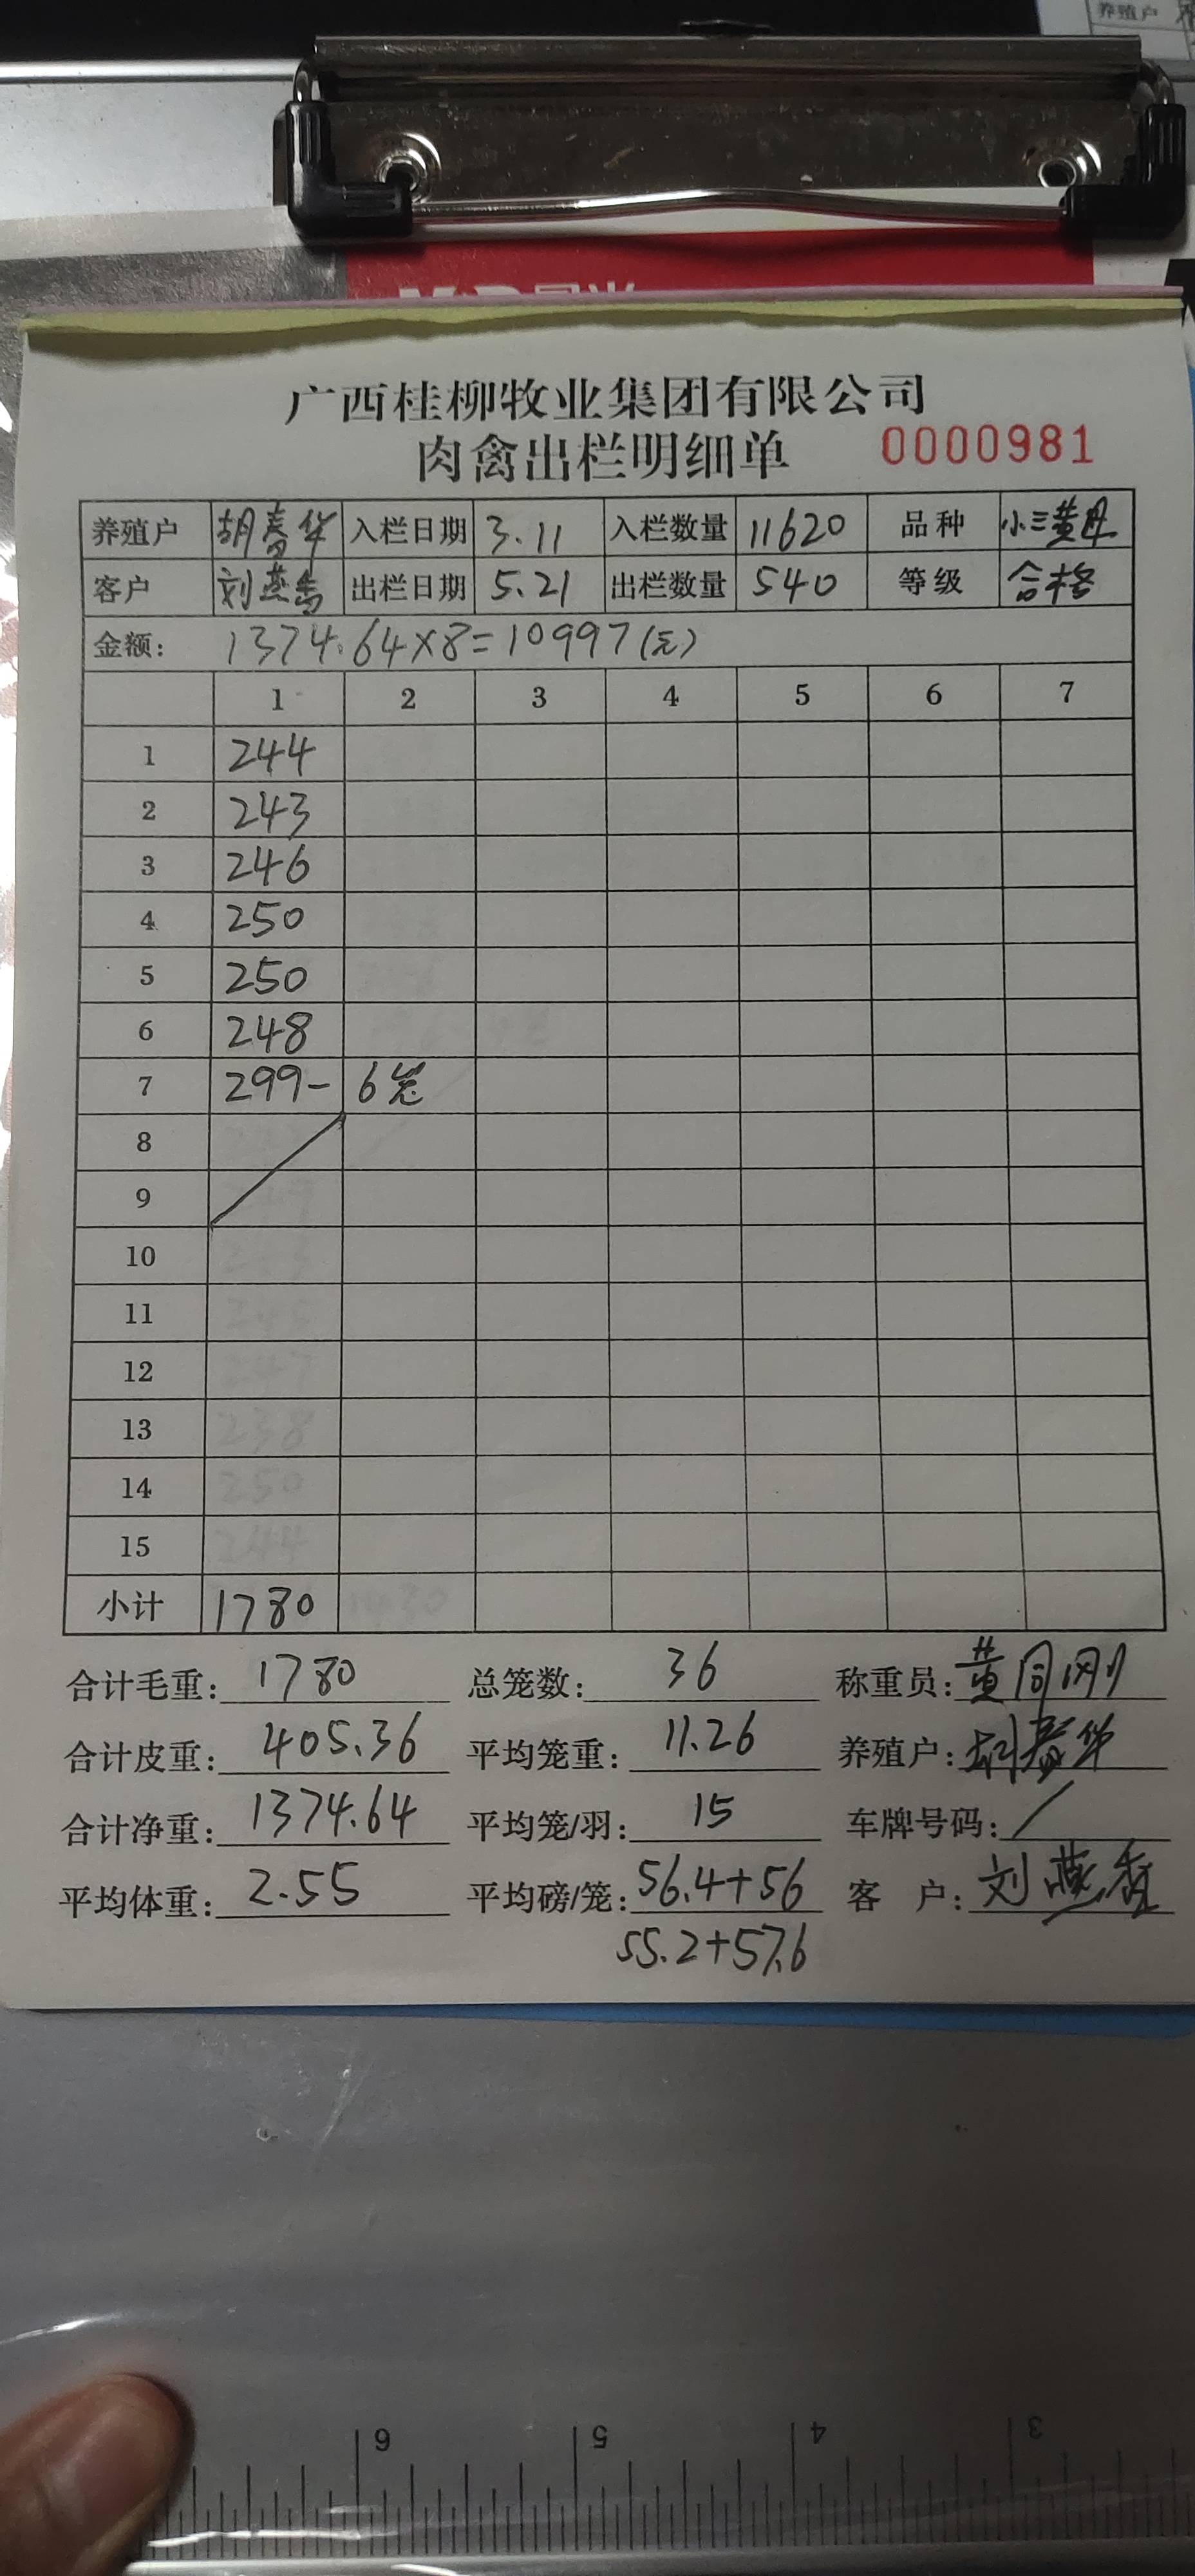 养殖户
广西桂柳牧业集团有限公司
肉禽出栏明细单 0000981
养殖户 胡春华 入栏日期 3.11 入栏数量 11620 品种 小三黄
客户 刘燕香 出栏日期 5.21 出栏数量 540 等级 合格
金额: 1374.64×8=10997(元)
1 2 3 4 5 6 7
1 244
2 243
3 246
4 250
5 250
6 248
7 299- 6笼
8
9
10
11
12
13
14
15
小计 1780
合计毛重: 1780 总笼数: 36 称重员: 黄同刚
合计皮重: 405.36 平均笼重: 11.26 养殖户: 胡春华
合计净重: 1374.64 平均笼/羽: 15 车牌号码: /
平均体重: 2.55 平均磅/笼: 56.4+56 客 户: 刘燕香
55.2+57.6
6 5 4 3